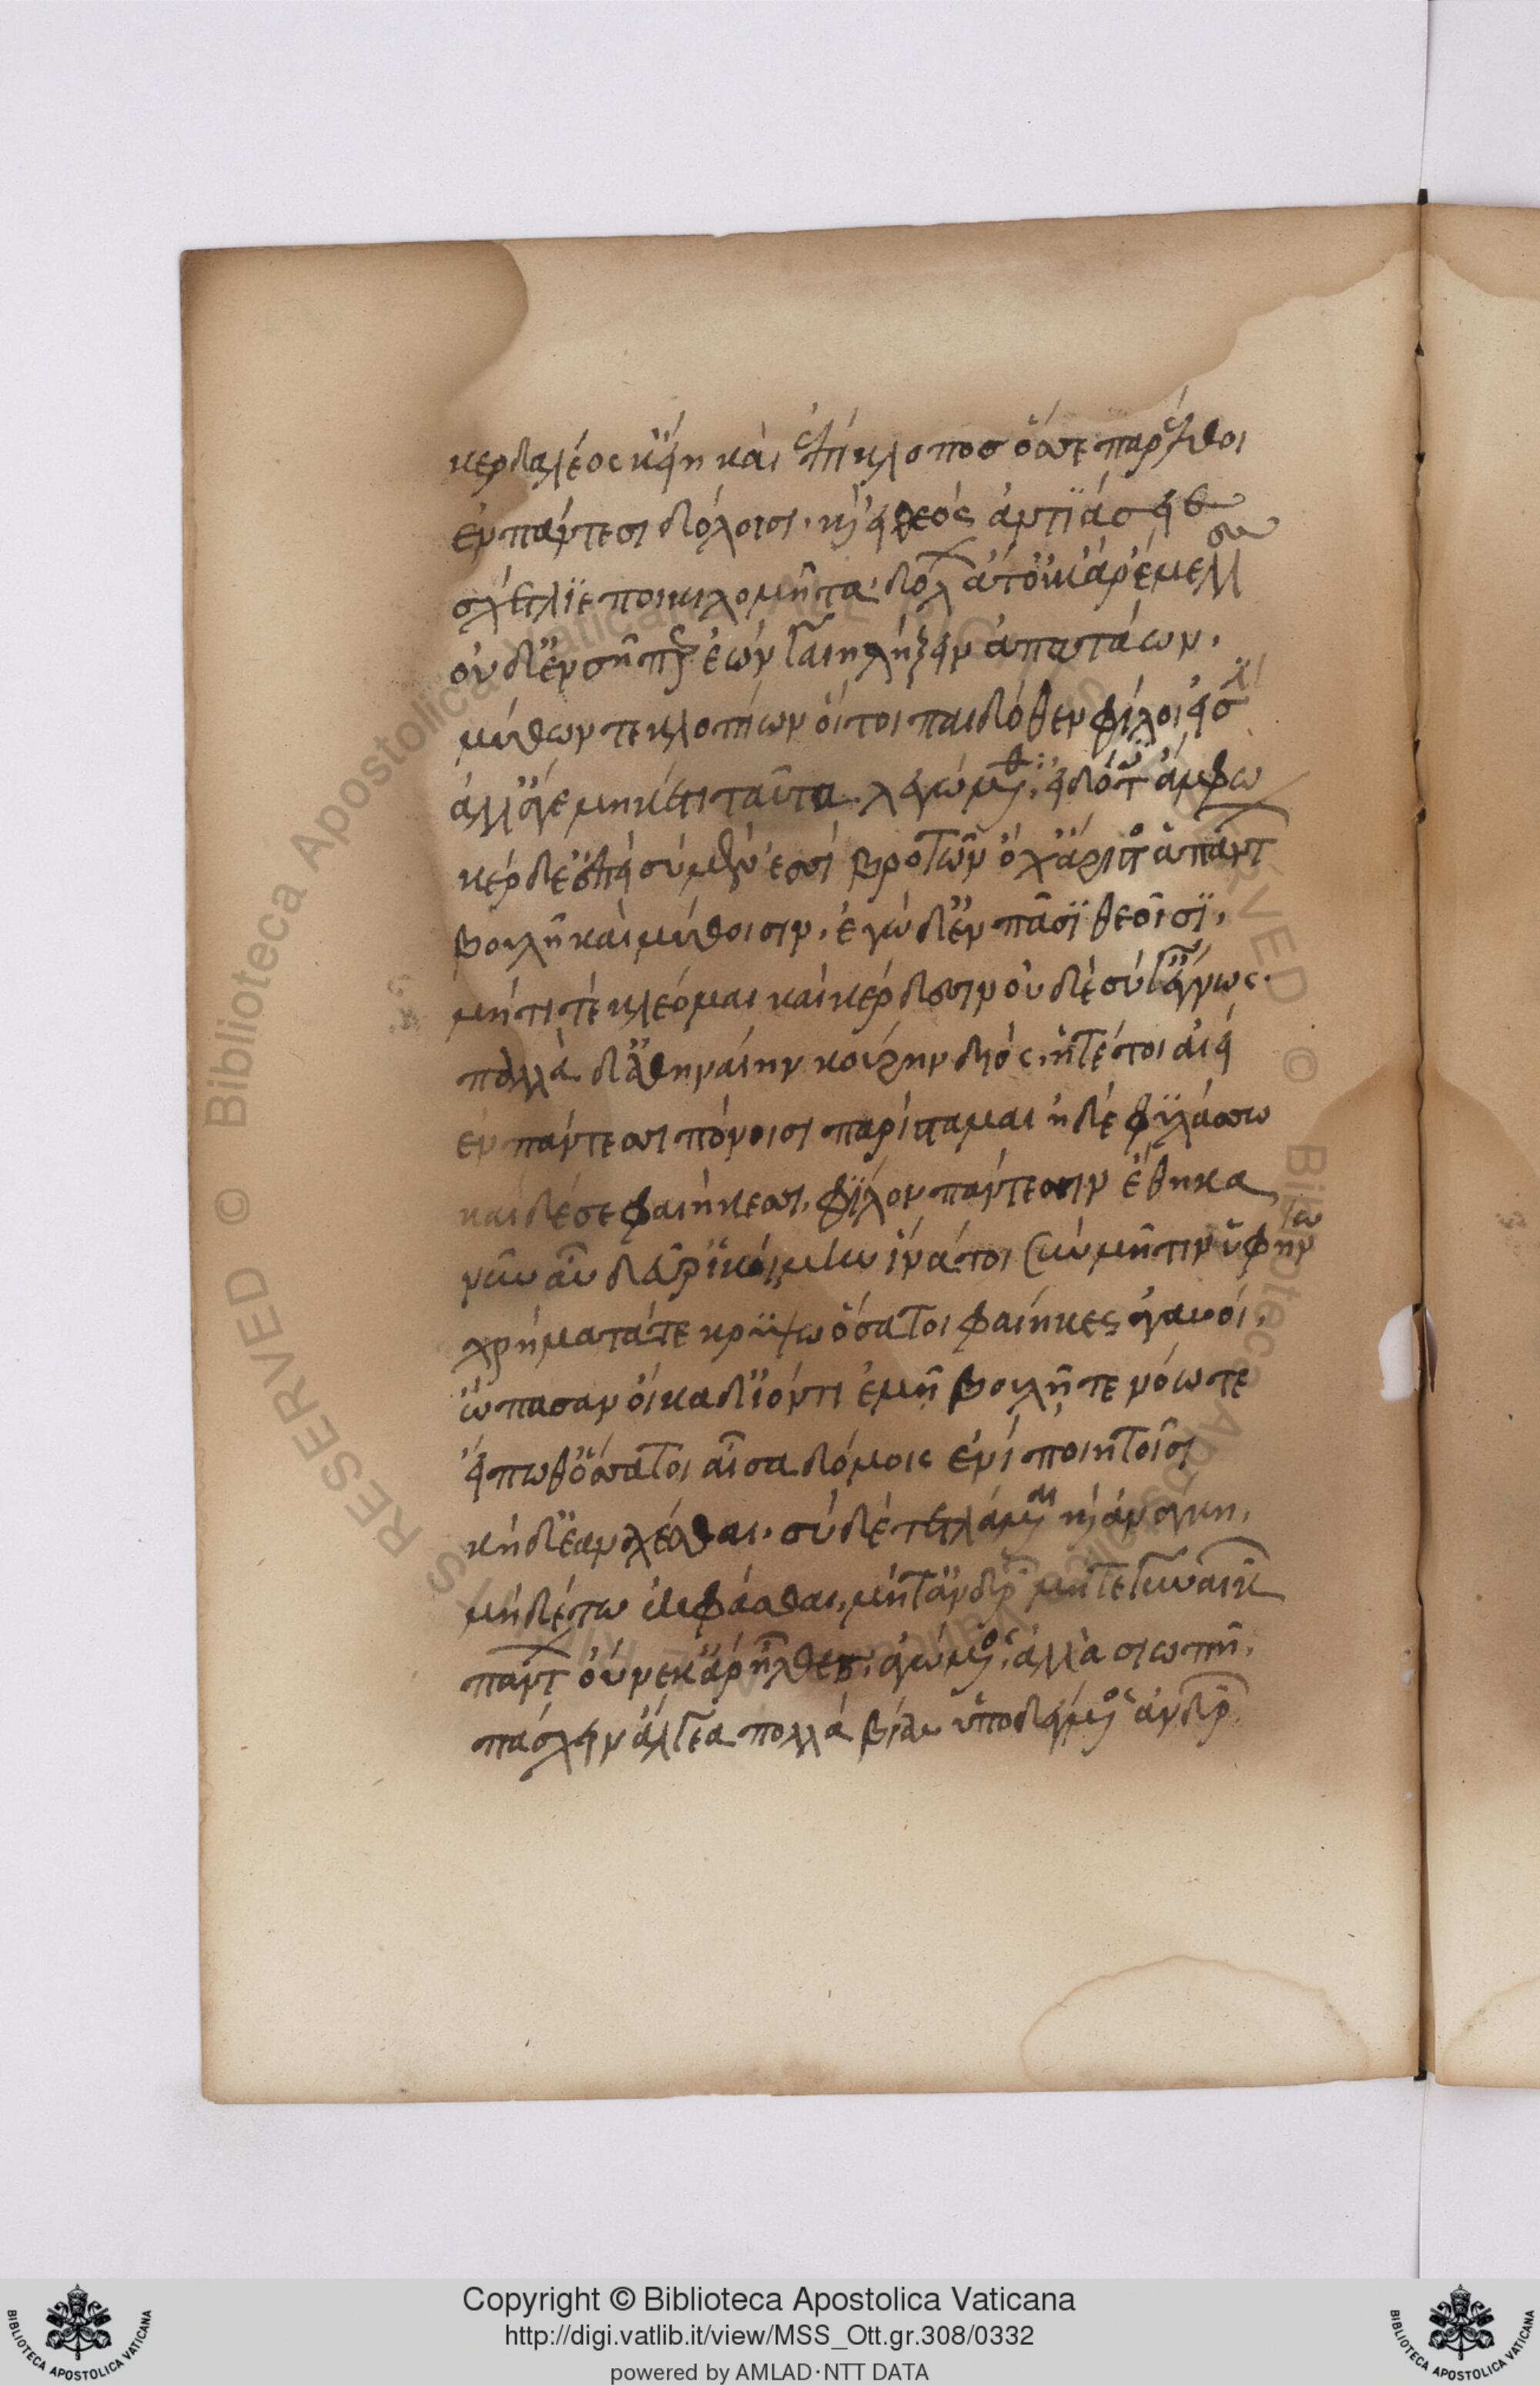 κερδαλέος κ' εἴη καὶ ἐπίκλοπος ὅσσε παρέλθοι
ἐν πάντεσι δόλοισι. κ' εἰ θεὸς ἀντιάσειε
σχέτλιε ποικιλομῆτα δόλων ἄτ' οὐκ ἄρ' ἔμελλες
οὐδ' ἐν σῆ περ ἐὼν γαίη λήξειν ἀπατάων.
μύθων τε κλοπίων οἵ τοι παιδόθεν φίλοι εἰσὶ
ἀλλ' ἄγε μηκέτι ταῦτα λεγώμεθα. εἰδότες ἄμφω
κέρδε' ἐπεὶ σὺ μέν ἐσσι βροτῶν ὄχ' ἄριστος ἁπάντων
βουλῆ καὶ μύθοισιν. ἐγὼ δ' ἐν πᾶσι θεοῖσι.
μήτι τε κλέομαι καὶ κέρδεσιν οὐδὲ σύ γ' ἔγνως.
πολλὰ δ' ἀθηναίην κούρην διός. ἥτέ τοι αἰεὶ
ἐν πάντεσσι πόνοισι παρίσταμαι ἠδὲ φυλάσσω
καὶ δέ σε φαιήκεσσι. φίλον πάντεσσιν ἔθηκα
νῦν αὖ δεῦρ' ἱκόμην ἵνα τοι σὺν μῆτιν ὑφήνω
χρήματά τε κρύψω ὅσα τοι φαίηκες ἀγαυοί.
ὤπασαν οἴκαδ' ἰόντι ἐμῆ βουλῆ τε νόω τε
εἴπω θ' ὅσσα τοι αἶσα δόμοις ἐνὶ ποιητοῖσι
κήδε' ἀνσχέσθαι. σὺ δὲ τετλάμεναι καὶ ἀνάγκη.
μηδέ τω ἐκφάσθαι. μήτ' ἀνδρῶν μήτε γυναικῶν
πάντων οὕνεκ' ἄρ' ἦλθες. ἀλώμενος. ἀλλὰ σιωπῆ.
πάσχειν ἄλγεα πολλὰ βίας ὑποδέγμενος ἀνδρῶν.
Copyright © Biblioteca Apostolica Vaticana
http://digi.vatlib.it/view/MSS_Ott.gr.308/0332
powered by AMLAD·NTT DATA